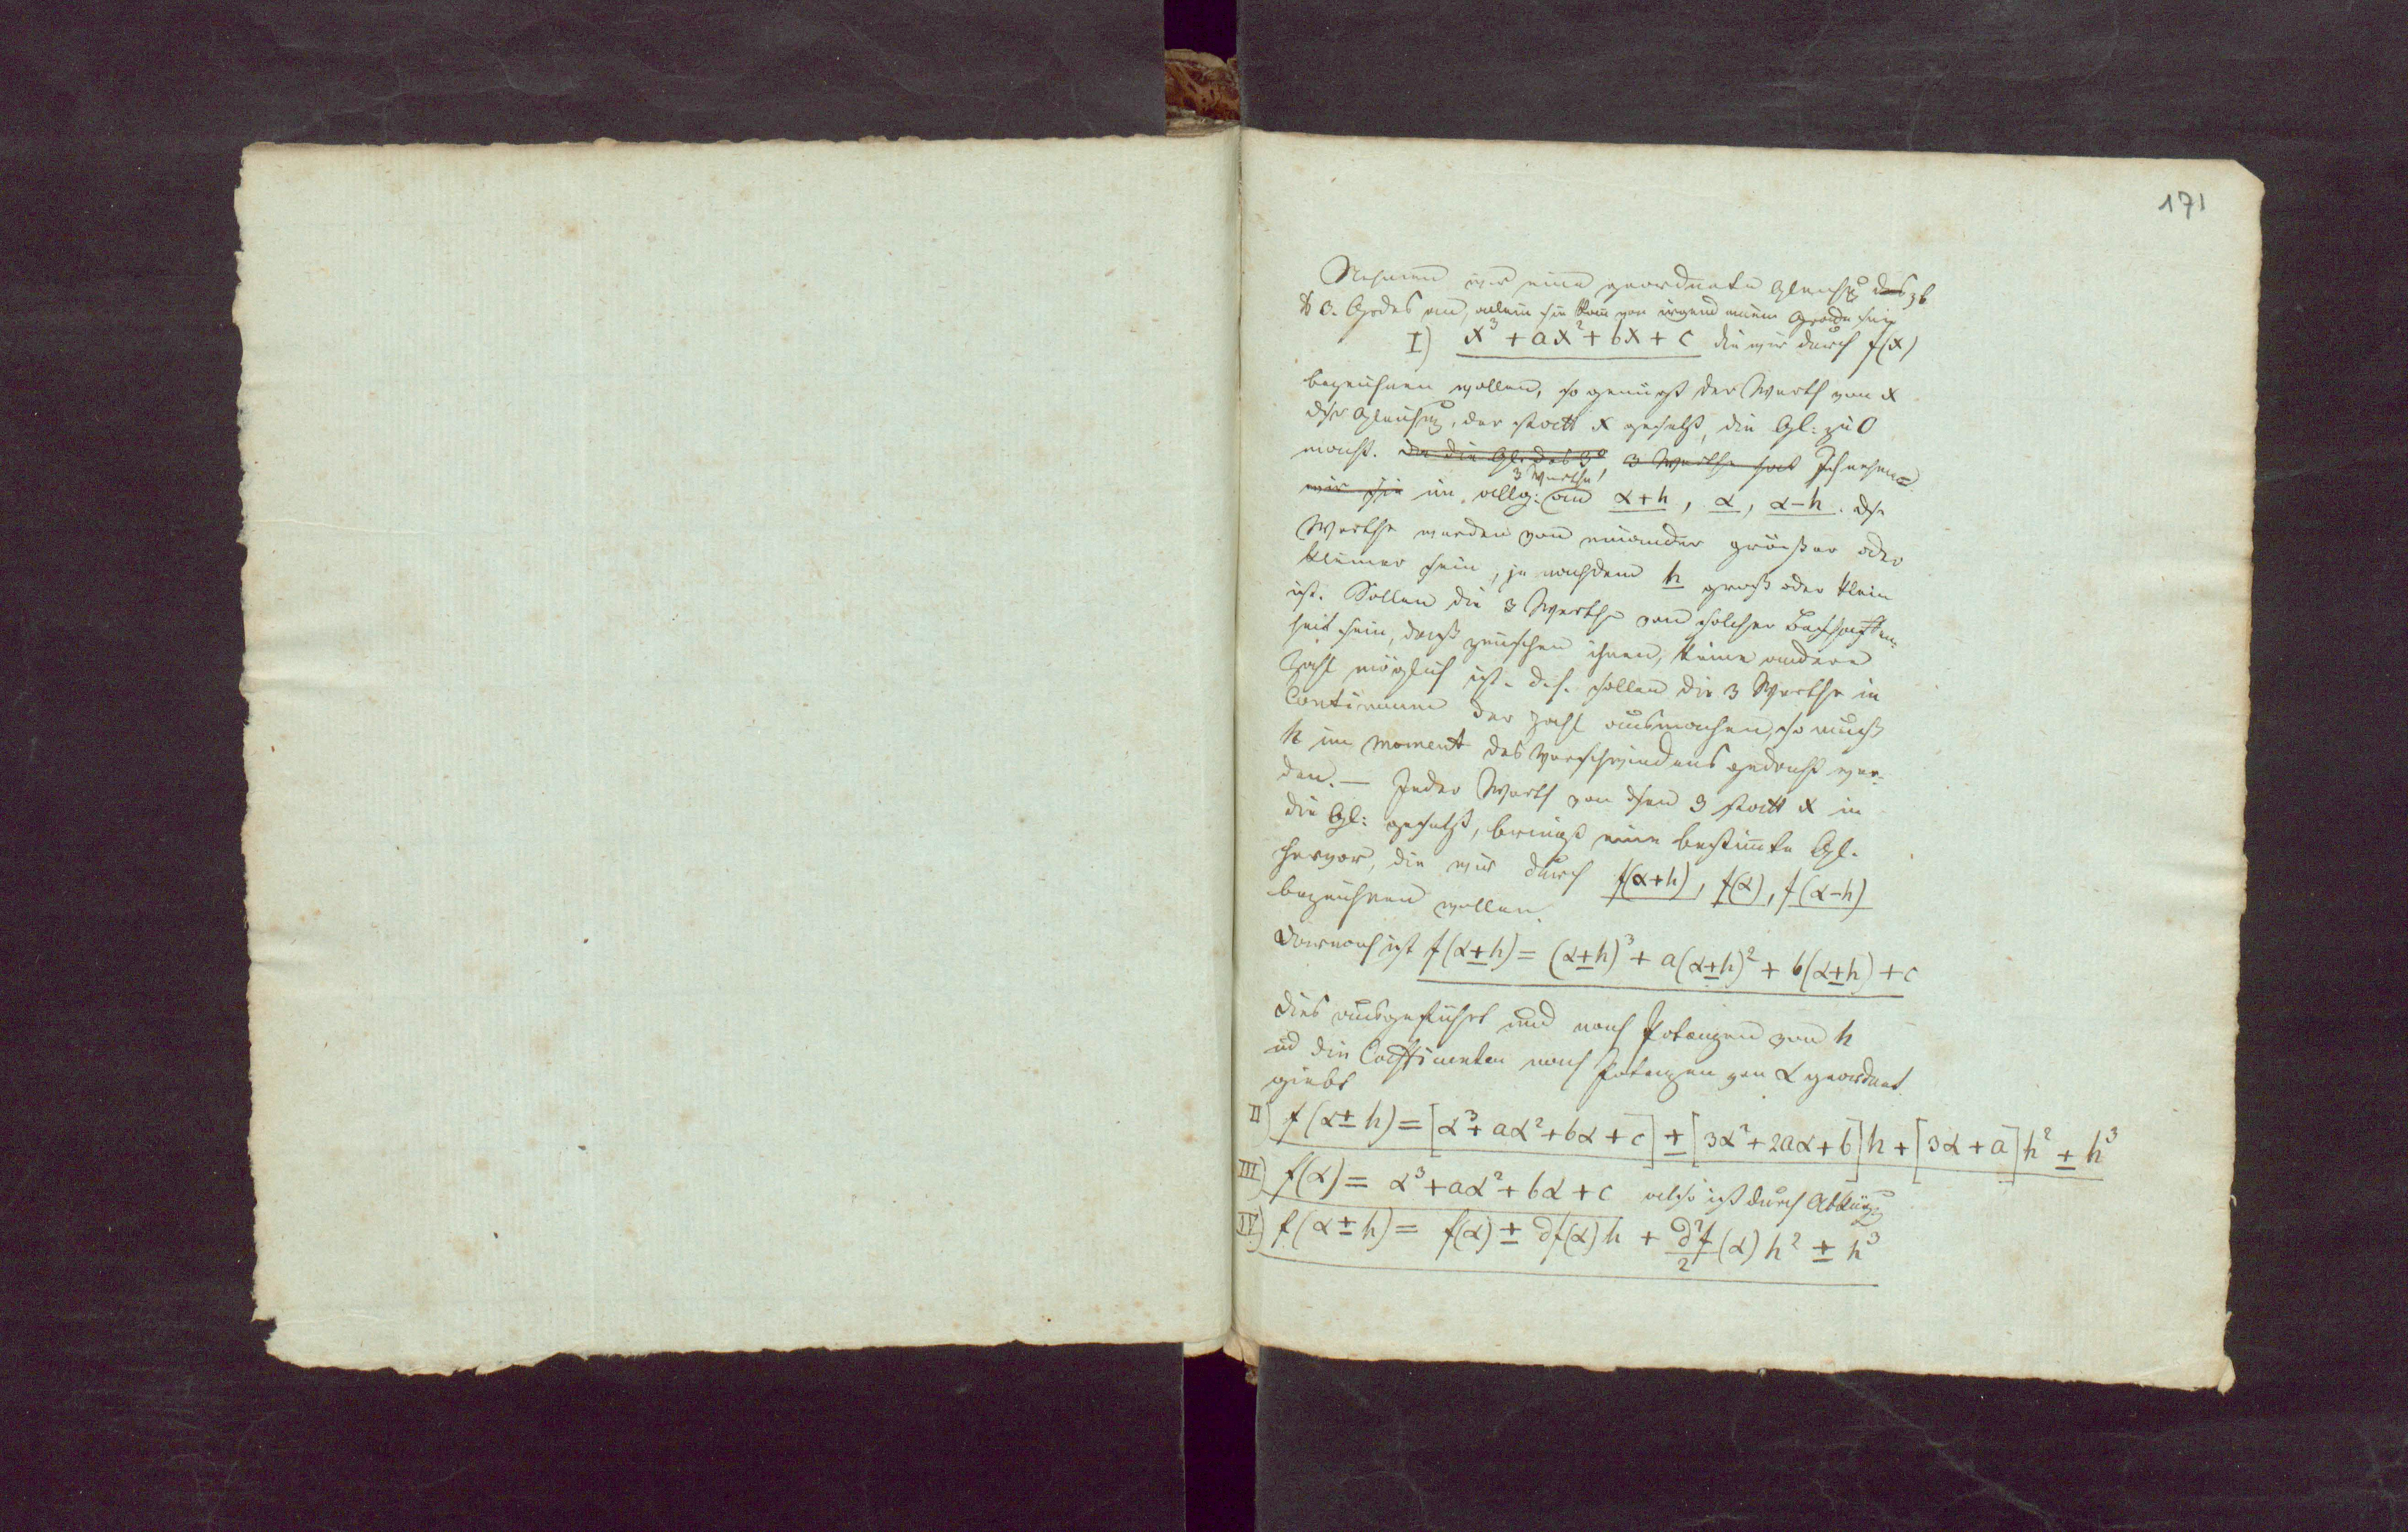 171
Nehmen wir eine geordnete Gleichg des zb
d 3. Grdes an, allein sie kann von irgend einem Grade sein
I) x³ + ax² + bx + c die wir durch f(x)
bezeichnen wollen, so genügt der Werth von x
dsr Gleichg, der statt x gesetzt, die Gl: zu 0
macht. Da die Gl. des 3ᵒ 3 Werthe hat Ich nehme
wir sie im allg: 3 Werthe an α+h, α, α−h. Dse
Werthe werden von einander größer oder
kleiner sein, je nachdem h groß oder klein
ist. Sollen die 3 Werthe von solcher Beschaffen-
heit sein, daß zwischen ihnen, keine andere
Zahl möglich ist. d.h. sollen die 3 Werthe in
Continuum der Zahl ausmachen, so muß
h im Moment des Verschwindens gedacht wer-
den. — Jeder Werth von dsen 3 statt x in
die Gl: gesetzt, bringt eine bestimmte Gl.
hervor, die wir durch f(α+h), f(α), f(α−h)
bezeichnen wollen.
Darnach ist f(α±h) = (α±h)³ + a(α±h)² + b(α±h) + c
Dies ausgeführt und nach Potenzen von h
ud die Coefficienten nach Potenzen von α geordnet
giebt
II) f(α±h) = [α³ + aα² + bα + c] ± [3α² + 2aα + b]h + [3α + a]h² ± h³
III) f(α) = α³ + aα² + bα + c also ist durch Abkürzg
IV) f(α±h) = f(α) ± ∂f(α)h + ∂²f/2 (α) h² ± h³